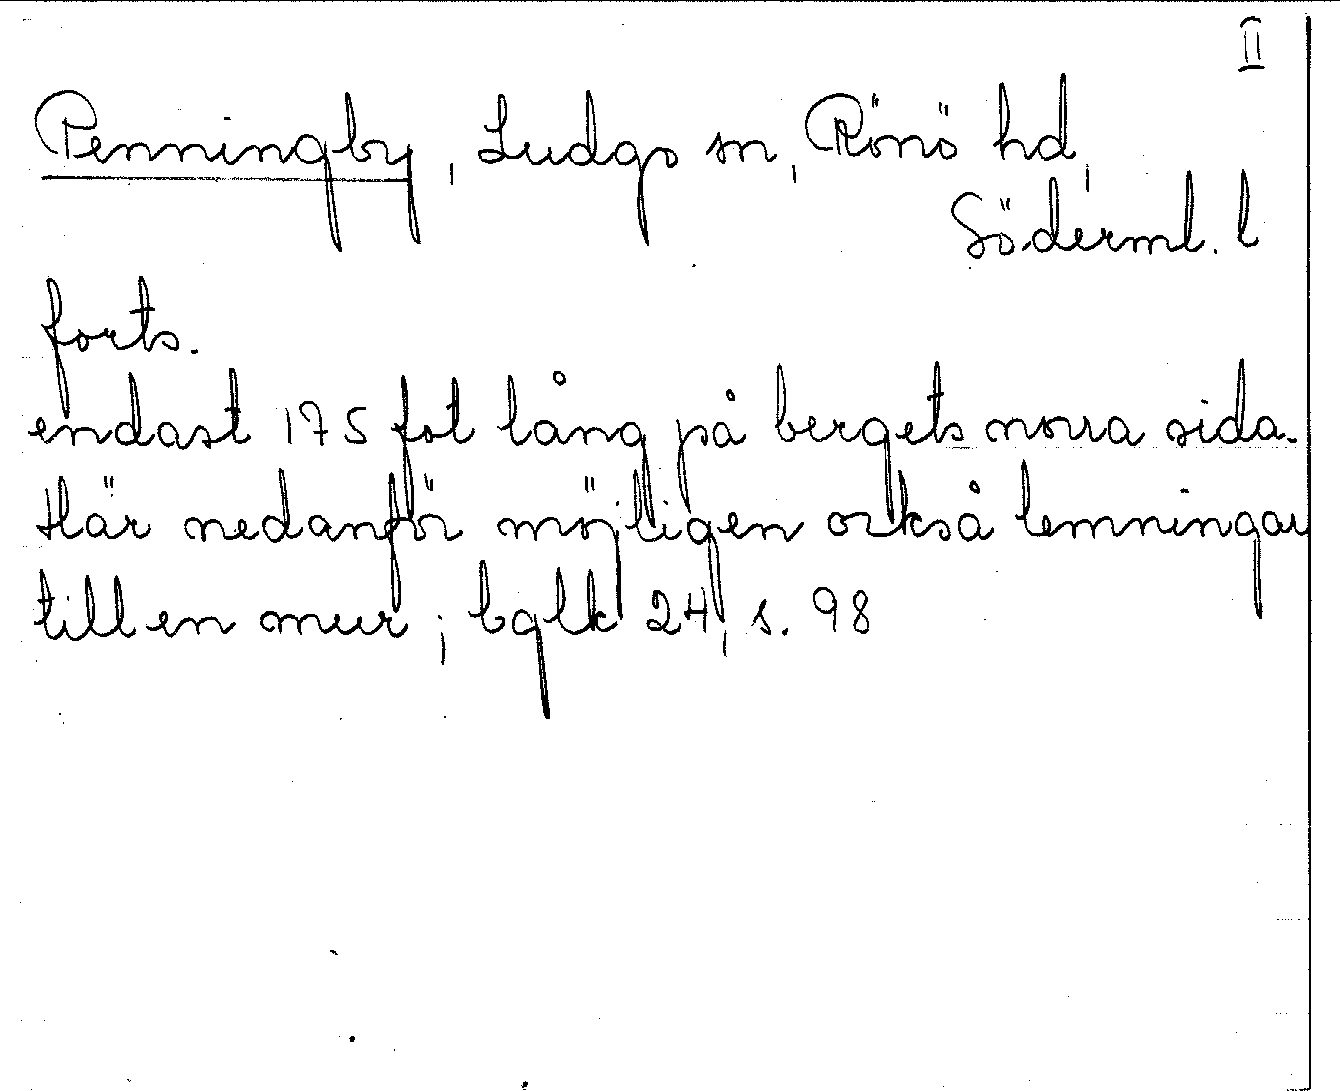 II
Penningby, Ludgo sn, Rönö hd,
Söderml. l
forts.
endast 175 fot lång på bergets norra sida.
Här nedanför möjligen också lemningar
till en mur; bglk 24, s. 98